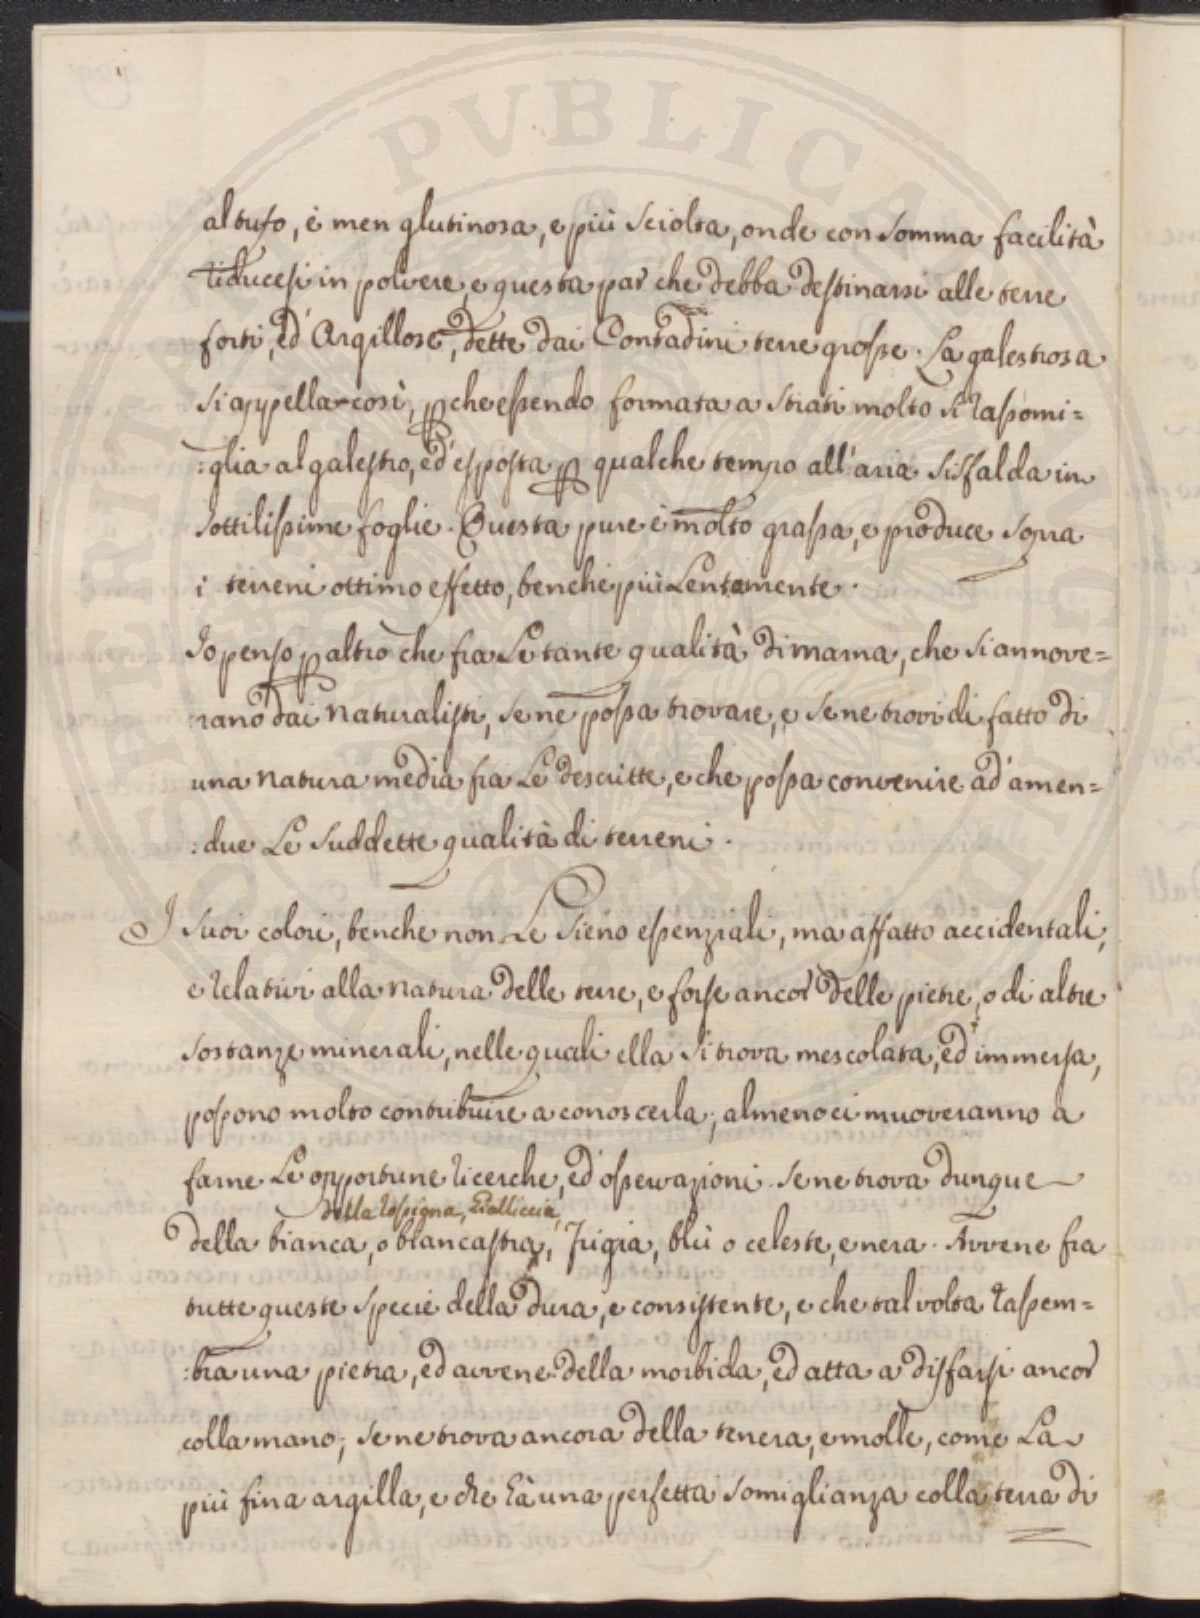 PROSPERITATI PUBLICAE AUGENDAE
al tufo, è men glutinosa, e più sciolta, onde con somma facilità
riducesi in polvere, e questa par che debba destinarsi alle terre
forti, ed Argillose, dette dai Contadini terre grosse. La galestrosa
si appella così, p che essendo formata a strati molto si rassomi=
:glia al galestro, ed esposta p qualche tempo all'aria si sfalda in
sottilissime foglie. Questa pure è molto grassa, e produce sopra
i terreni ottimo effetto, benchè più lentamente.
Io penso p altro che fra le tante qualità di marna, che si annove=
:rano dai Naturalisti, se ne possa trovare, e se ne trovi di fatto di
una natura media fra le descritte, e che possa convenire ad amen=
:due le suddette qualità di terreni.
I suoi colori, benche non le sieno essenziali, ma affatto accidentali,
e relativi alla natura delle terre, e forse ancor delle pietre, o di altre
sostanze minerali, nelle quali ella si trova mescolata, ed immersa,
possono molto contribuire a conoscerla; almeno ci muoveranno a
farne le opportune ricerche, ed osservazioni. Se ne trova dunque
della
della bianca, o biancastra, bigia, blù o celeste, e nera. Avvene fra
tutte queste specie della dura, e consistente, e che tal volta rassem=
:bra una pietra, ed avvene della morbida, ed atta a disfarsi ancor
colla mano; se ne trova ancora della tenera, e molle, come la
più fina argilla, e che hà una perfetta somiglianza colla terra di